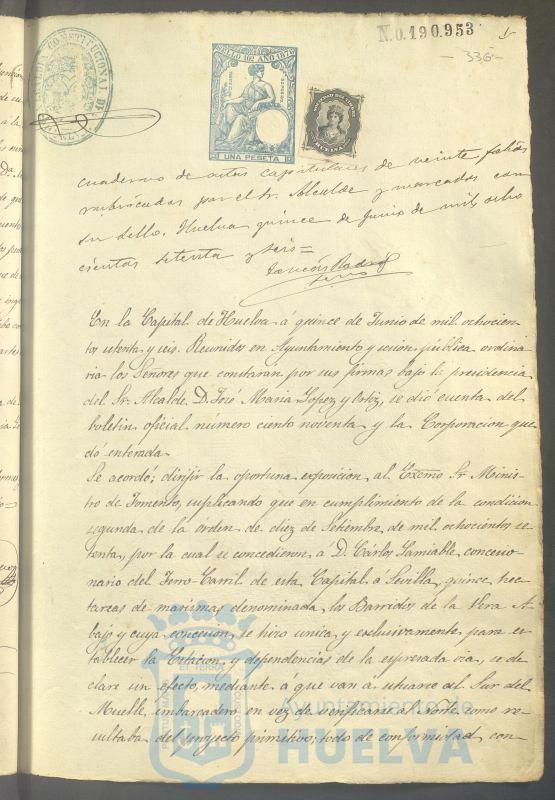 N.0.190.953
336
ALCALDIA CONSTITUCIONAL DE
SELLO 10º AÑO 1876
UNA PESETA
HUELVA
Cuaderno de actas capitulares de veinte folios
rubricadas por el Sr. Alcalde y marcados con
su sello. Huelva quince de Junio de mil ocho
cientos setenta y seis=
En la Capital de Huelva á quince de Junio de mil ochocien
tos setenta y seis. Reunidos en Ayuntamiento y sesion pública ordina
ria los Señores que constarán por sus firmas bajo la presidencia
del Sr. Alcalde D. José Maria Lopez y Ortiz, se dió cuenta del
boletin oficial número ciento noventa y la Corporacion que
dó enterada.
Se acordó: dirijir la oportuna exposicion al Excmo Sr. Minis
tro de Fomento, suplicando que en cumplimiento de la condicion
segunda de la orden de diez de Setiembre de mil ochocientos se
tenta, por la cual se concedieron a D. Cárlos Lamiable concesio
nario del Ferro-Carril de esta Capital a Sevilla, quince hec
tareas de marismas denominada los Barridos de la Vera A
bajo y cuya concesion se hizo unica y exclusivamente para es
tablecer la Estacion y dependencias de la espresada via, se de
clare sin efecto, mediante á que van á situarse al Sur del
Muelle embarcadero en vez de verificarse al Norte como re
sultaba del proyecto primitivo; todo de conformidad con
Ayuntamiento de
HUELVA